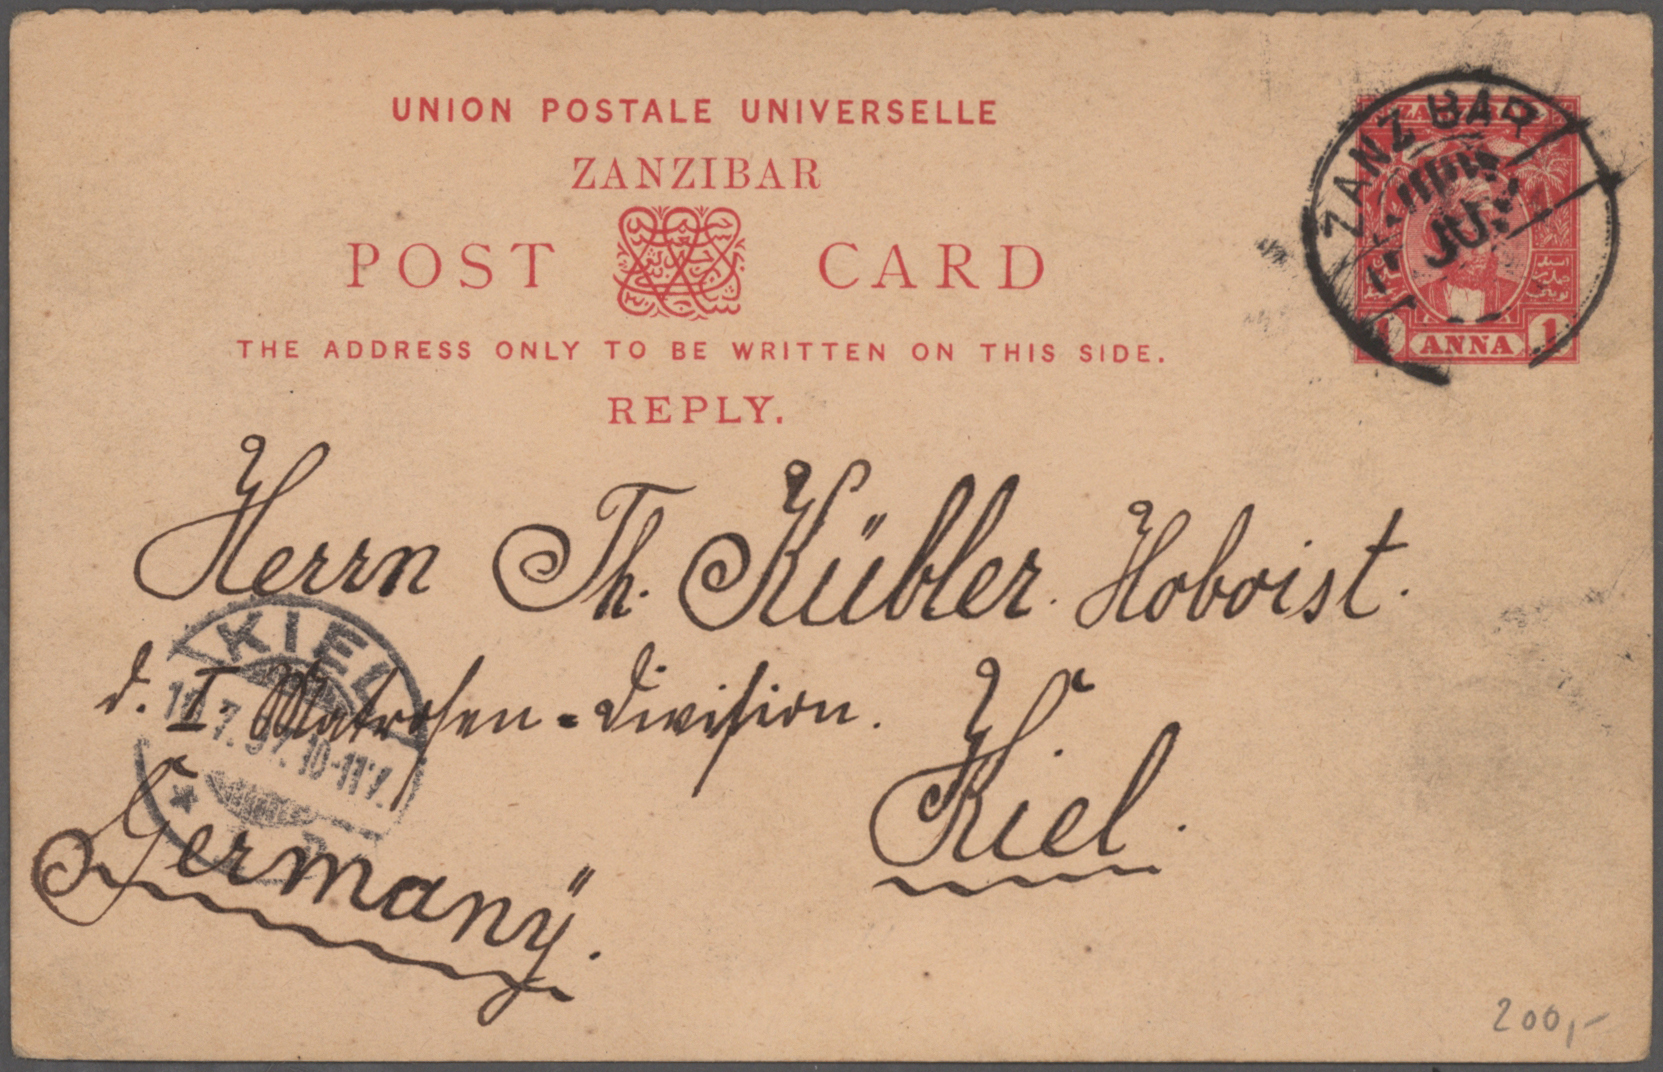 UNION POSTALE UNIVERSELLE
ZANZIBAR
POST CARD
THE ADDRESS ONLY TO BE WRITTEN ON THIS SIDE.
REPLY.
ZANZIBAR
JU
1 ANNA 1
Herrn Th. Kübler. Hoboist.
d. I Matrosen-Division.
Kiel.
Germanÿ.
KIEL
7.97. 10-11V.
200,-